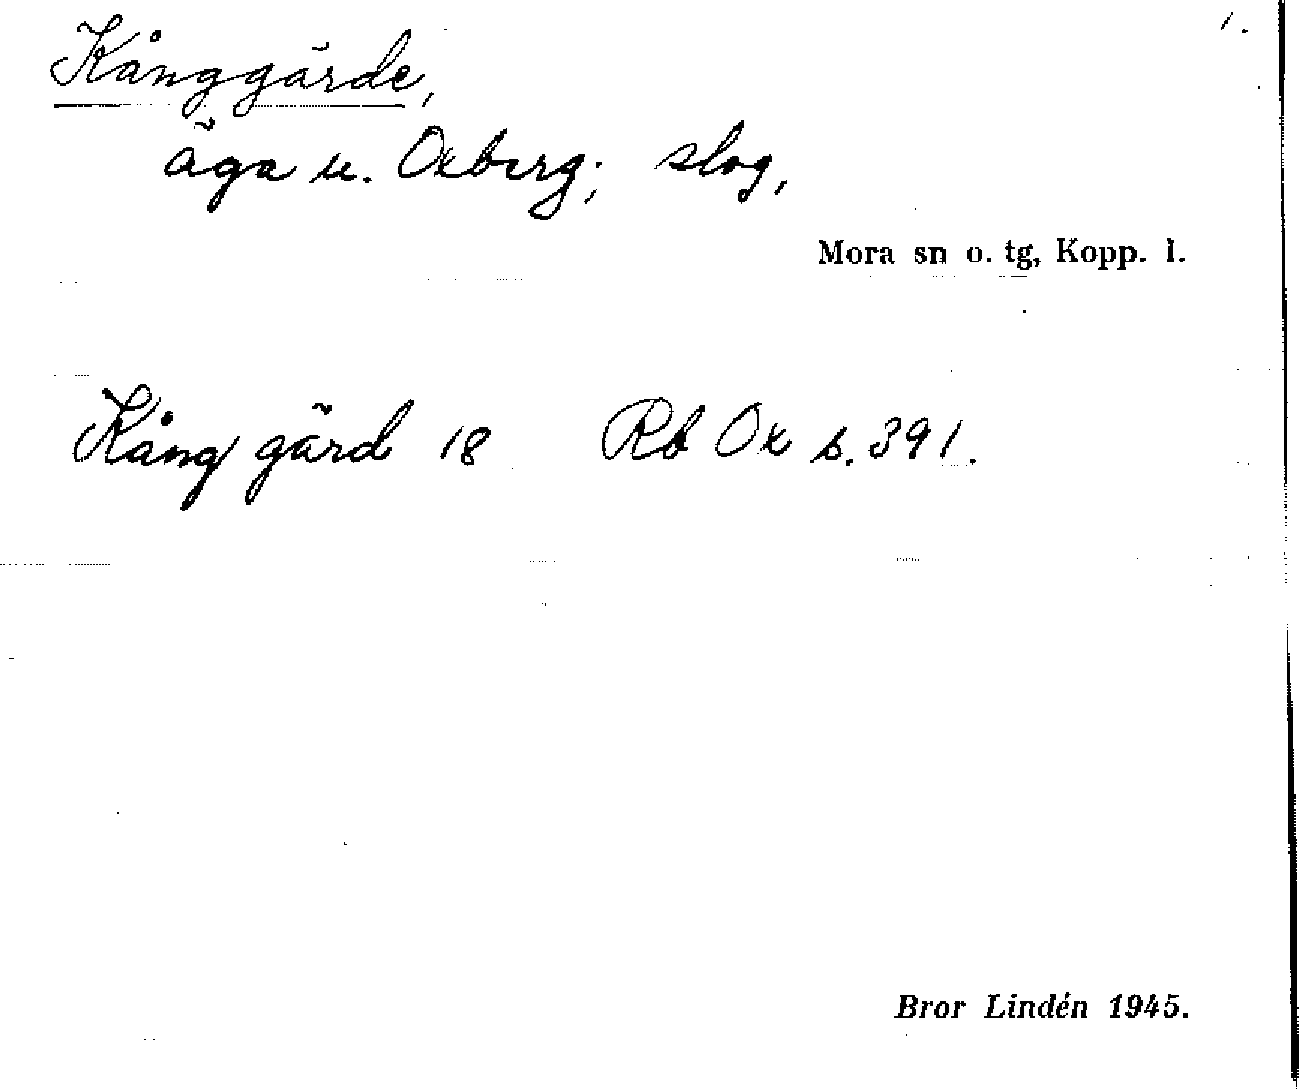 1.
Kånggärde,
äga u. Oxberg; slog,
Mora sn o. tg, Kopp. l.
Kång gärd 18 Rb Ox s. 391.
Bror Lindén 1945.